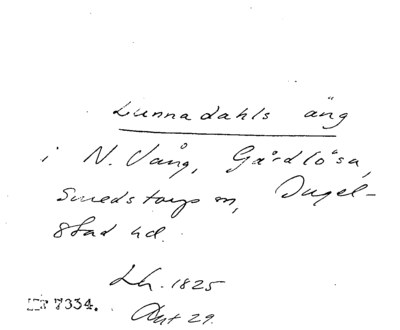 Lunnadahls äng
i N. Vång, Gårdlösa,
Smedstorps sn, Ingel-
stad hd.
Lh. 1825
Akt 29.
7334.